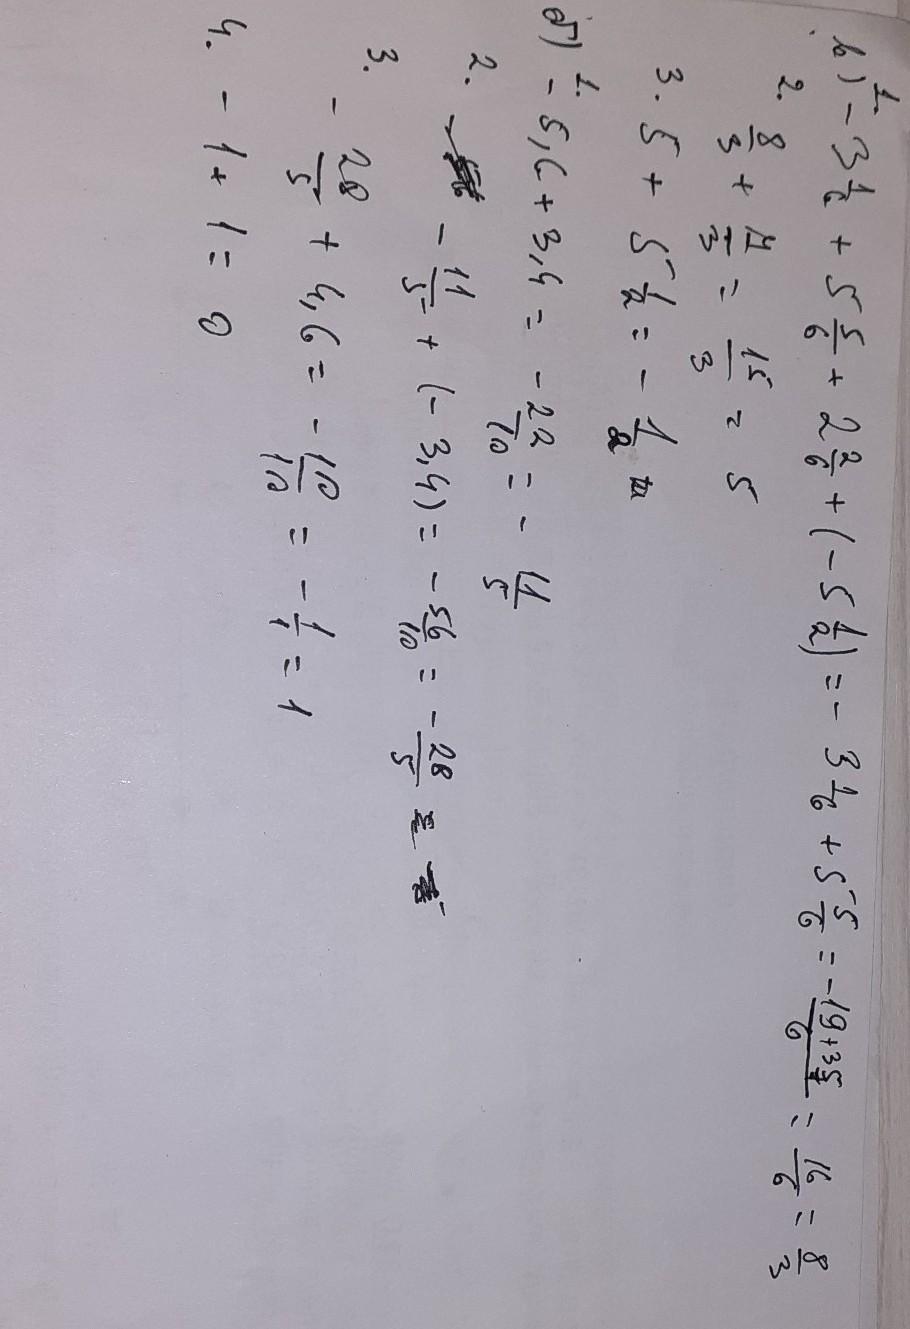 в) 1. - 3 1/6 + 5 5/6 + 2 2/6 + (- 5 1/2) = - 3 1/6 + 5 5/6 = - 19+35/6 = 16/6 = 8/3
2. 8/3 + 7/3 = 15/3 = 5
3. 5 + 5 1/2 = - 1/2
б) 1. - 5,6 + 3,4 = - 22/10 = - 11/5
2. - 11/5 + (- 3,4) = - 56/10 = - 28/5
3. - 28/5 + 4,6 = - 10/10 = - 1/1 = 1
4. - 1 + 1 = 0